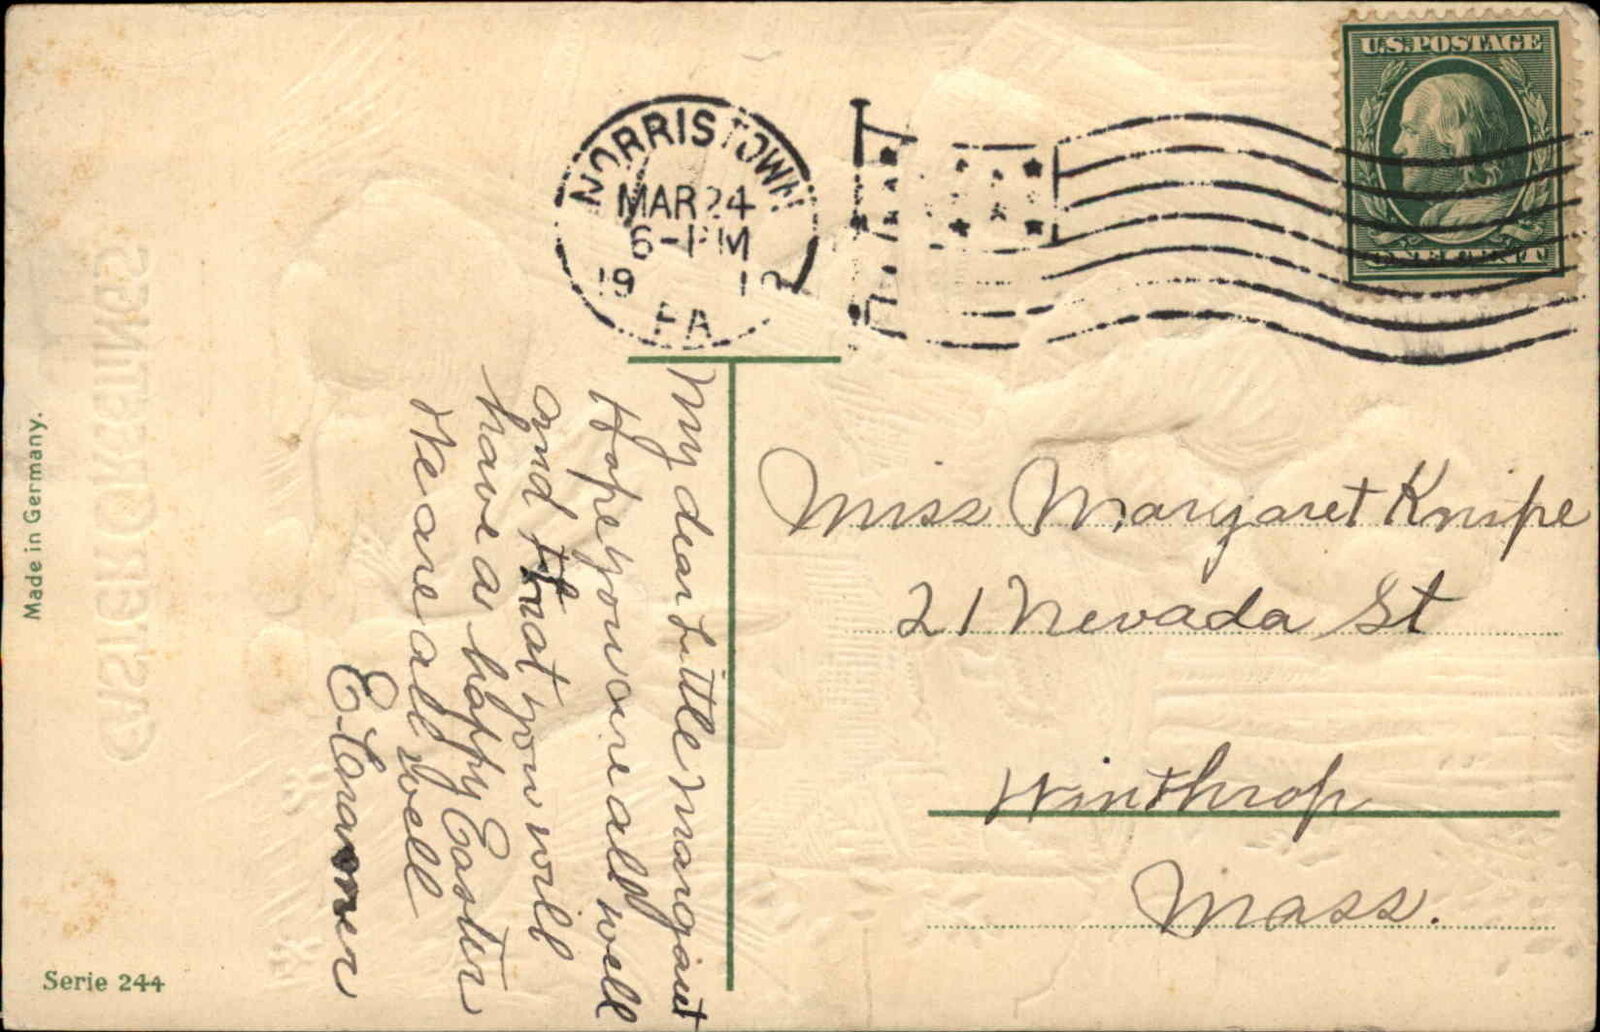 U.S. POSTAGE
NORRISTOWN
MAR 24
6-PM
19 10
PA
My dear Little Margaret
Hope you are all well
and that you will
have a happy Easter
We are all well
E. Cramer
Miss Margaret Knipe
21 Nevada St
Winthrop
Mass.
Made in Germany.
EASTER GREETINGS
Serie 244